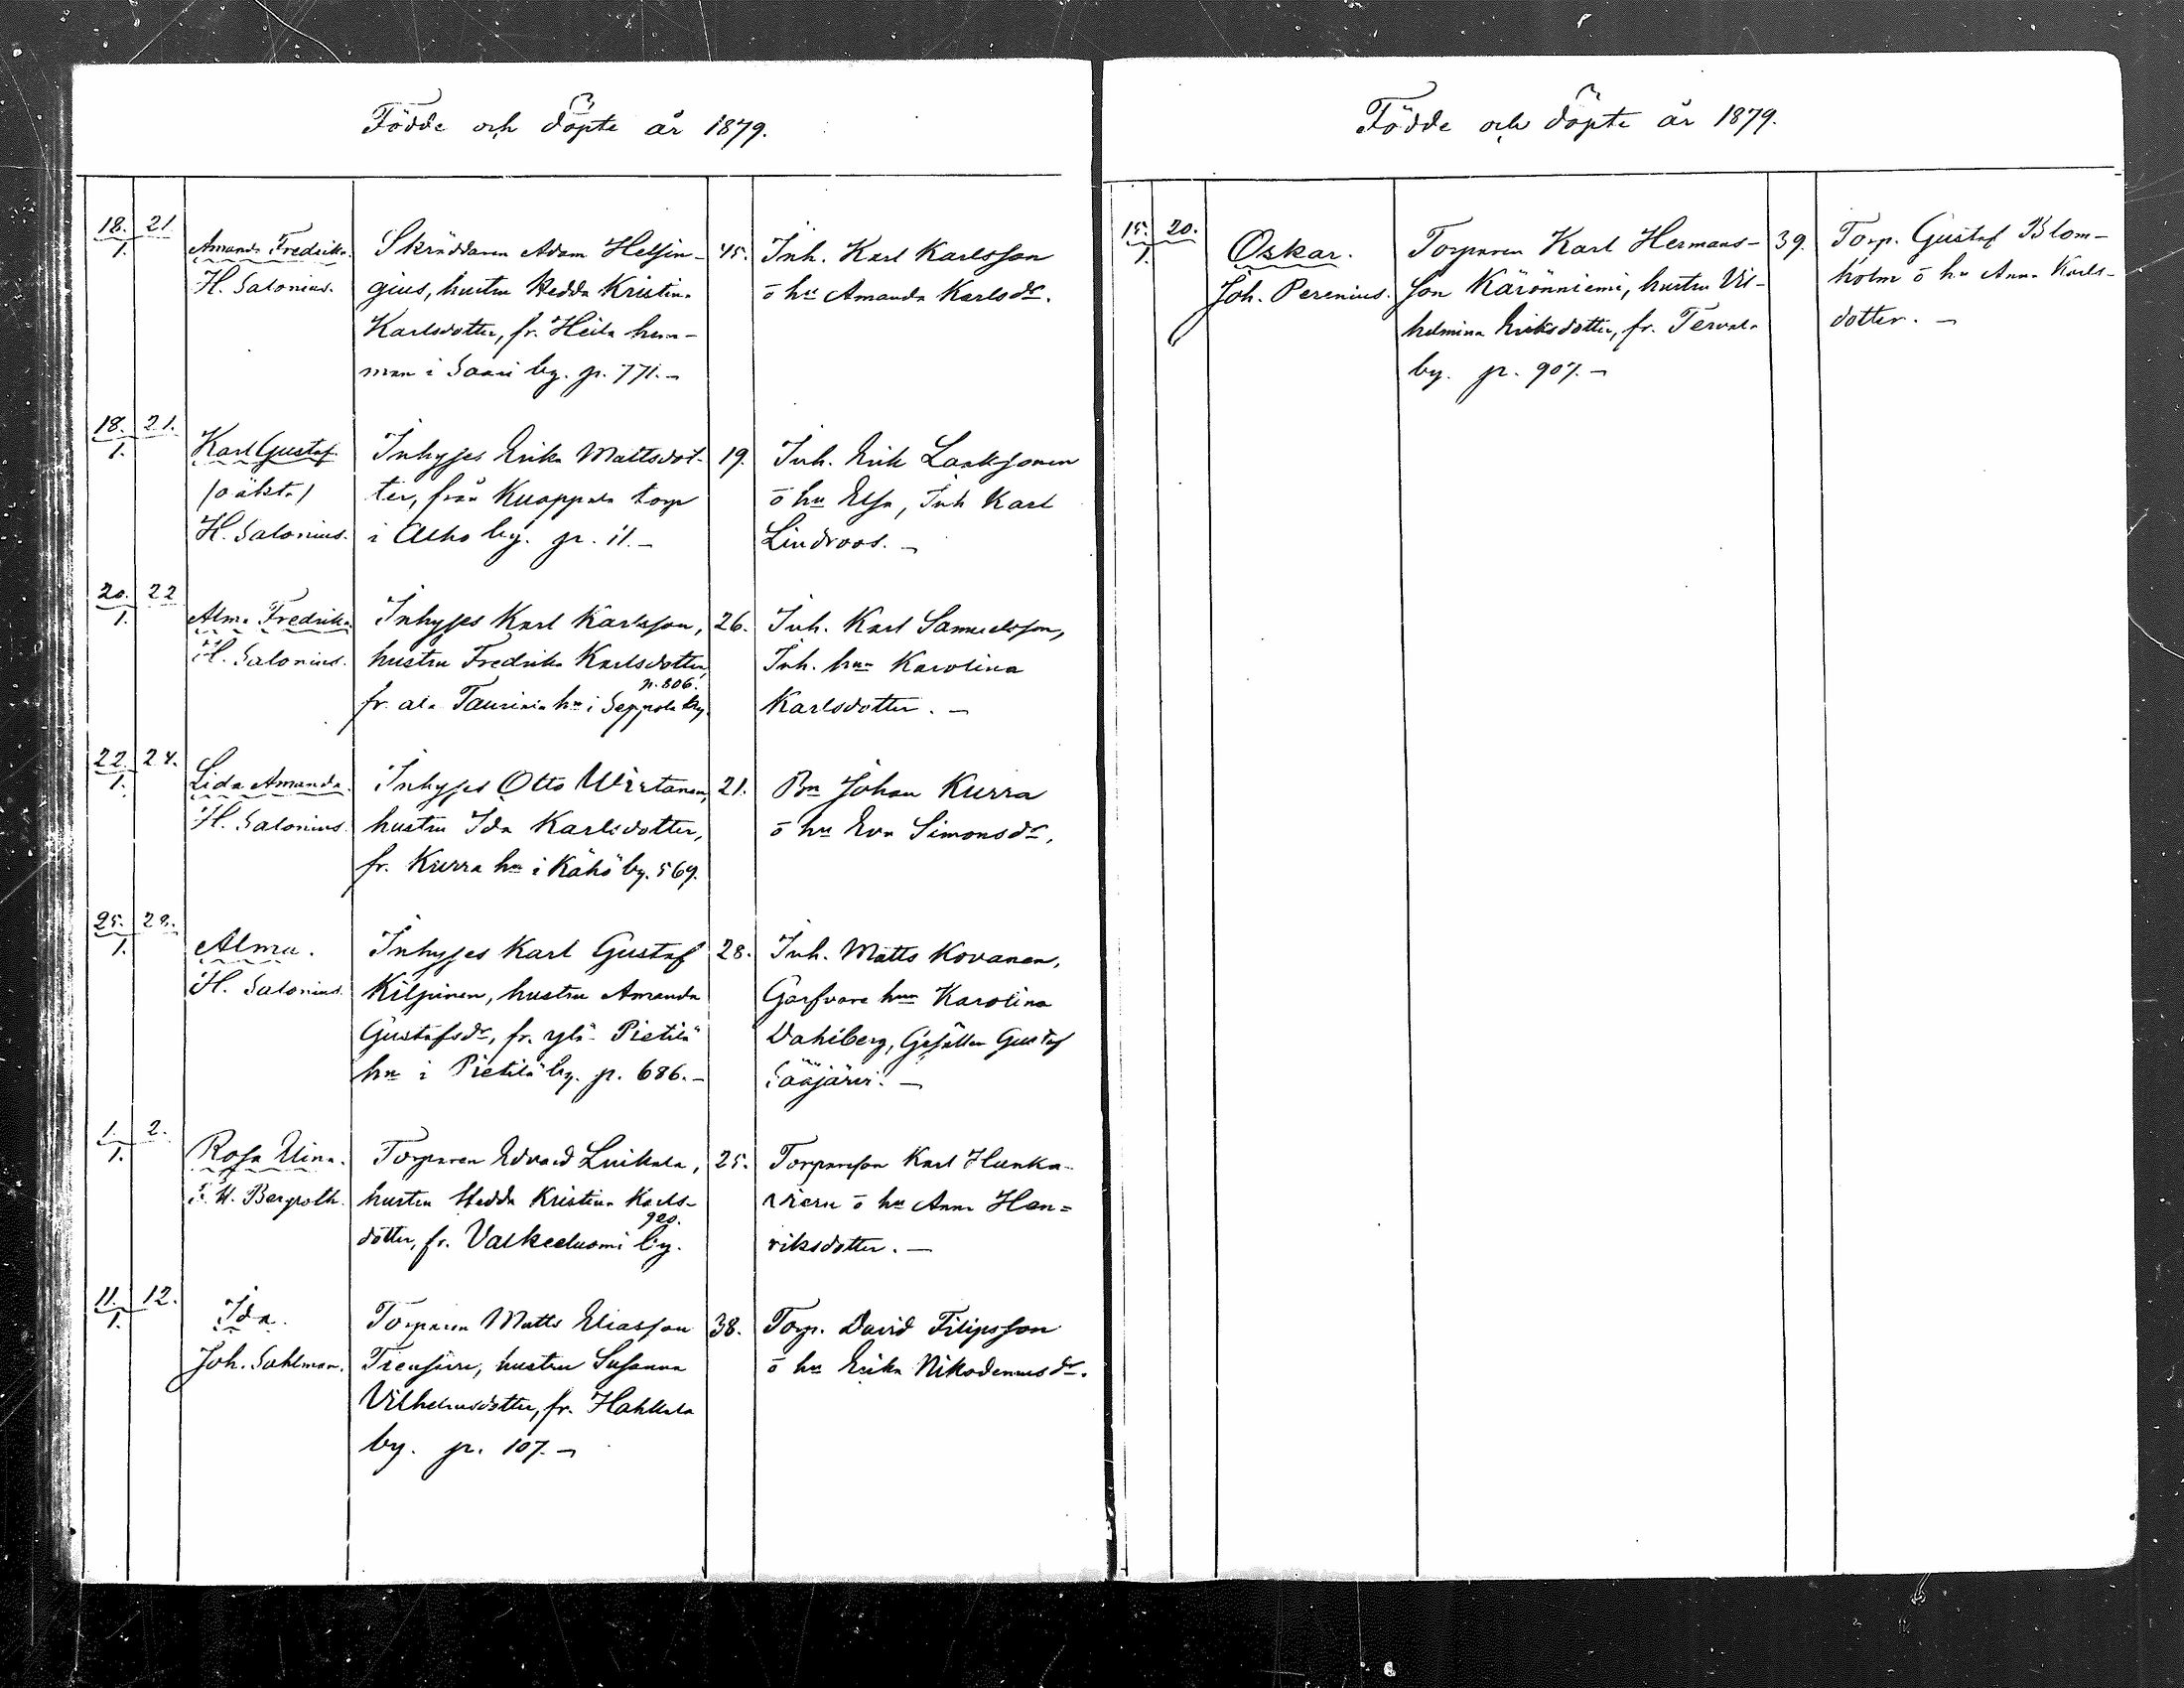 Födde och döpte år 1879.
18. 21.
1.
Amanda Fredrika.
H. Salonius.
Skräddaren Adam Helsin-
gius, hustru Hedda Kristina
Karlsdotter, fr. Heila hem-
man i Saari by. p. 771.-
45.
Inh. Karl Karlsson
o hu Amanda Karlsdr.
18. 21.
1.
Karl Gustaf.
/oäkta/
H. Salonius.
Inhyses Erika Mattsdot-
ter, från Kuoppala torp
i Alho by. p. 11.-
19.
Inh. Erik Laaksonen
o hu Elsa, Inh Karl
Lindroos.-
20. 22
1.
Alma Fredrika
H. Salonius.
Inhyses Karl Karlsson,
hustru Fredrika Karlsdotter,
p. 806.
fr. ala Taurinia hn i Seppola by.
26.
Inh. Karl Samuelsson,
Inh. hun Karolina
Karlsdotter.-
22. 24.
1.
Lida Amanda.
H. Salonius.
Inhyses Otto Wirtanen,
hustru Ida Karlsdotter,
fr. Kurra hn i Kähö by. 569.
21.
Bn Johan Kurra
o hu Eva Simonsdr.
25. 28.
1.
Alma.
H. Salonius.
Inhyses Karl Gustaf
Kilpinen, hustru Amanda
Gustafsdr, fr. ylä-Pietilä
hn i Pietilä by. p. 686.-
28.
Inh. Matts Kovanen,
Garfvare hun Karolina
Dahlberg, Gesällen Gustaf
Sääjärvi.-
1. 2.
1.
Rosa Elina.
K. H. Bergroth.
Torparen Edvard Luikala,
hustru Hedda Kristina Karls-
920.
dotter, fr. Valkeeluomi by.
25.
Torpareson Karl Hunka-
vieru o hu Anna Hen=
riksdotter.-
11. 12.
1.
Ida.
Joh. Sahlman.
Torparen Matts Eliasson
Treusuru, hustru Susanna
Vilhelmsdotter, fr. Hahkala
by. p. 107.-
38.
Torp. David Filipsson
o hu Erika Nikodemusdr.
Födde och döpte år 1879.
15. 20.
1.
Oskar.
Joh. Perenius.
Torparen Karl Hermans-
son Kärönniemi, hustru Vil-
helmina Eriksdotter, fr. Tervala
by. p. 907.-
39.
Torp. Gustaf Blom-
holm o hu Anna Karls-
dotter.-